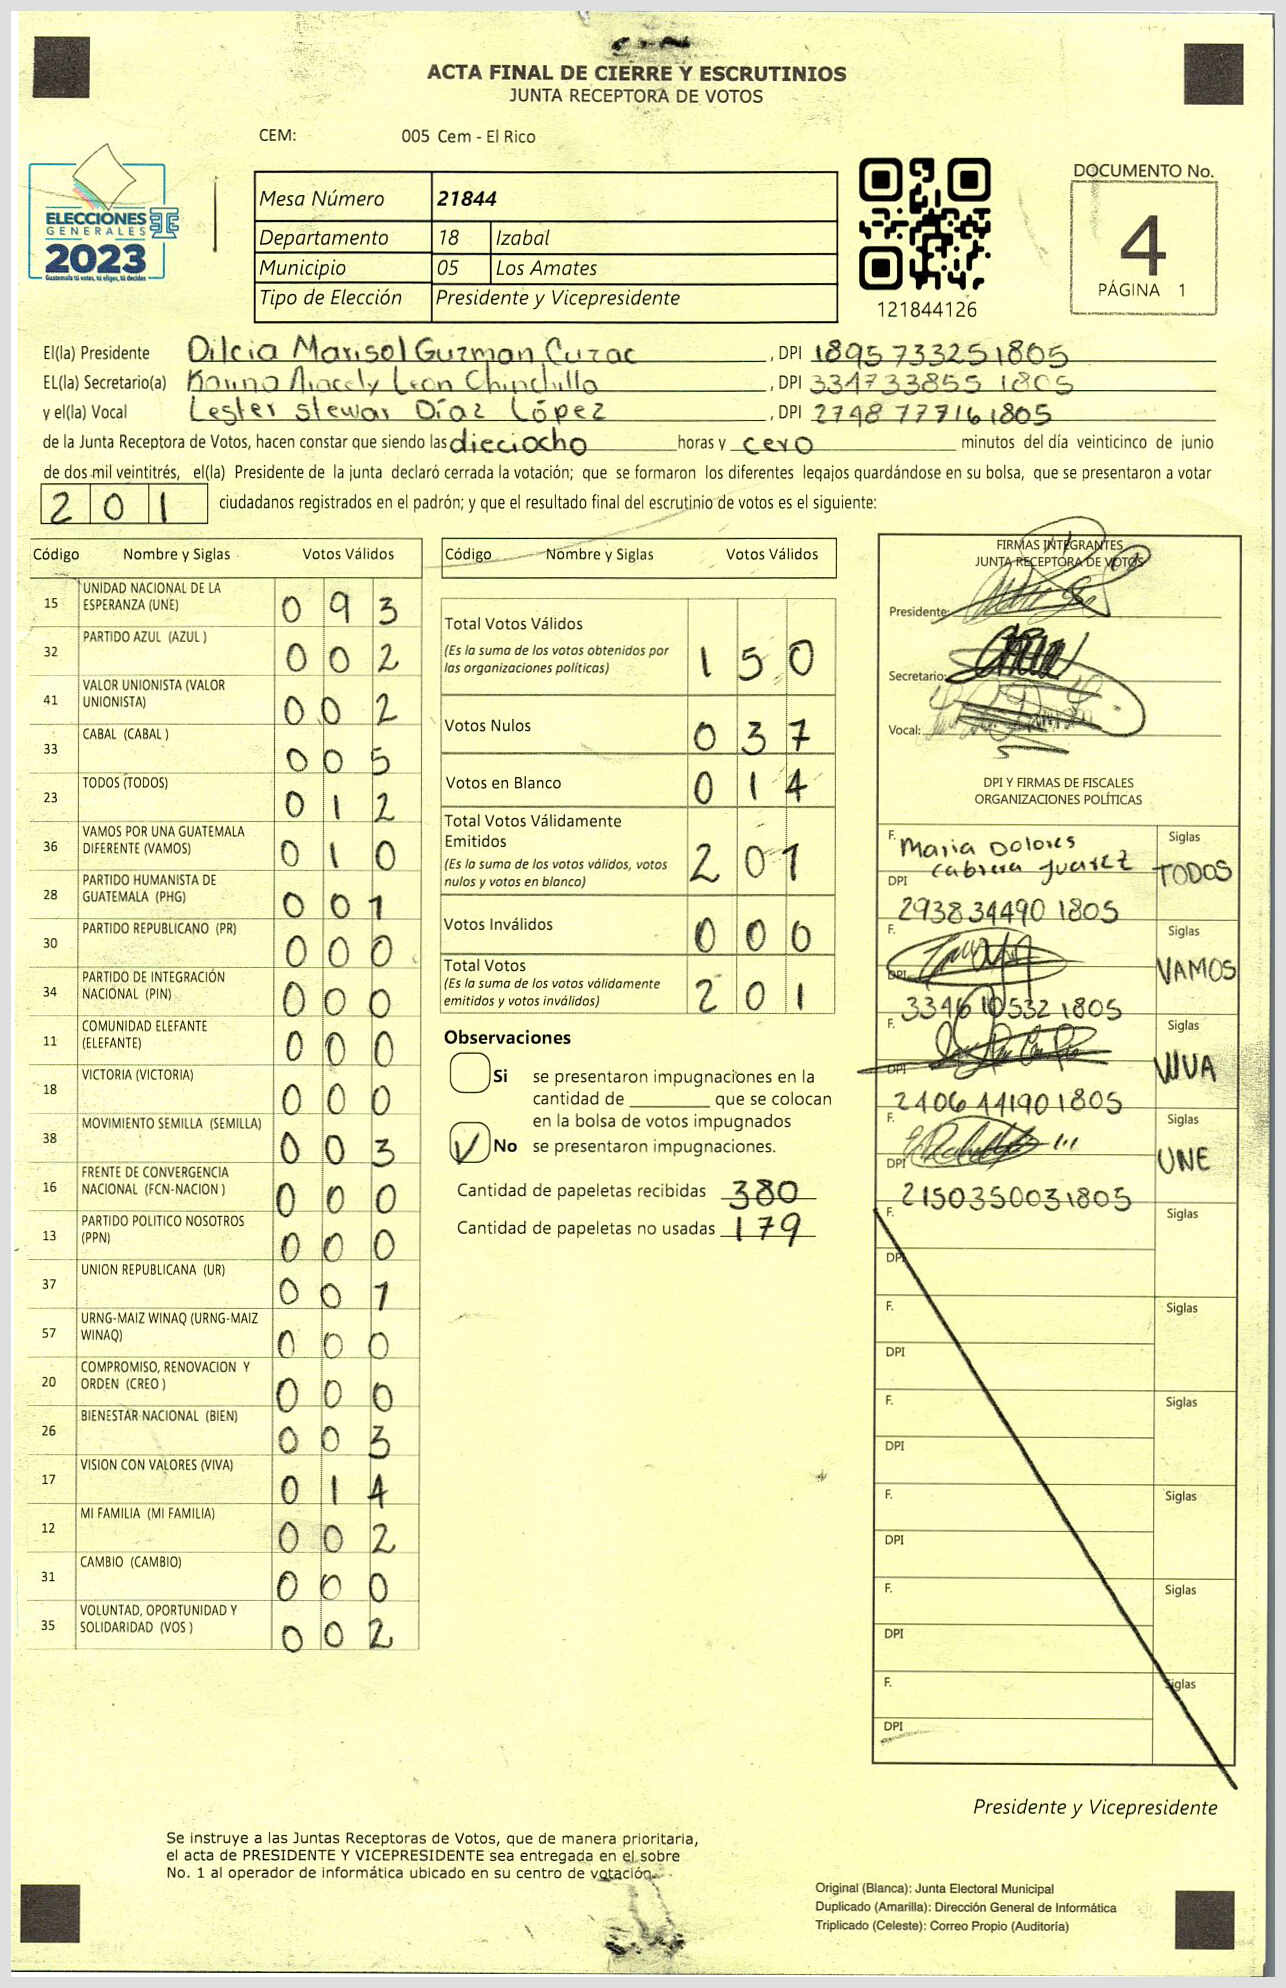 ACTA FINAL DE CIERRE Y ESCRUTINIOS
JUNTA RECEPTORA DE VOTOS
CEM: 005 Cem - El Rico
ELECCIONES
GENERALES
2023
Guatemala tú votas, tú eliges, tú decides
Mesa Número 21844
Departamento 18 Izabal
Municipio 05 Los Amates
Tipo de Elección Presidente y Vicepresidente
121844126
DOCUMENTO No.
4
PÁGINA 1
El(la) Presidente Dilcia Marisol Guzman Cuzac, DPI 1895733251805
EL(la) Secretario(a) Karina Aracely Leon Chinchilla, DPI 3347338551805
y el(la) Vocal Lester stewar Díaz López, DPI 2748777161805
de la Junta Receptora de Votos, hacen constar que siendo las dieciocho horas y cero minutos del día veinticinco de junio
de dos mil veintitrés, el(la) Presidente de la junta declaró cerrada la votación; que se formaron los diferentes legajos guardándose en su bolsa, que se presentaron a votar
201 ciudadanos registrados en el padrón; y que el resultado final del escrutinio de votos es el siguiente:
Código Nombre y Siglas Votos Válidos
15 UNIDAD NACIONAL DE LA ESPERANZA (UNE) 093
32 PARTIDO AZUL (AZUL ) 002
41 VALOR UNIONISTA (VALOR UNIONISTA) 002
33 CABAL (CABAL ) 005
23 TODOS (TODOS) 012
36 VAMOS POR UNA GUATEMALA DIFERENTE (VAMOS) 010
28 PARTIDO HUMANISTA DE GUATEMALA (PHG) 001
30 PARTIDO REPUBLICANO (PR) 000
34 PARTIDO DE INTEGRACIÓN NACIONAL (PIN) 000
11 COMUNIDAD ELEFANTE (ELEFANTE) 000
18 VICTORIA (VICTORIA) 000
38 MOVIMIENTO SEMILLA (SEMILLA) 003
16 FRENTE DE CONVERGENCIA NACIONAL (FCN-NACION ) 000
13 PARTIDO POLITICO NOSOTROS (PPN) 000
37 UNION REPUBLICANA (UR) 001
57 URNG-MAIZ WINAQ (URNG-MAIZ WINAQ) 000
20 COMPROMISO, RENOVACION Y ORDEN (CREO ) 000
26 BIENESTAR NACIONAL (BIEN) 003
17 VISION CON VALORES (VIVA) 014
12 MI FAMILIA (MI FAMILIA) 002
31 CAMBIO (CAMBIO) 000
35 VOLUNTAD, OPORTUNIDAD Y SOLIDARIDAD (VOS ) 002
Código Nombre y Siglas Votos Válidos
Total Votos Válidos 150
(Es la suma de los votos obtenidos por
las organizaciones políticas)
Votos Nulos 037
Votos en Blanco 014
Total Votos Válidamente
Emitidos 201
(Es la suma de los votos válidos, votos
nulos y votos en blanco)
Votos Inválidos 000
Total Votos 201
(Es la suma de los votos válidamente
emitidos y votos inválidos)
Observaciones
Si se presentaron impugnaciones en la
cantidad de ________ que se colocan
en la bolsa de votos impugnados
No se presentaron impugnaciones.
Cantidad de papeletas recibidas 380
Cantidad de papeletas no usadas 179
FIRMAS INTEGRANTES
JUNTA RECEPTORA DE VOTOS
Presidente:
Secretario:
Vocal:
DPI Y FIRMAS DE FISCALES
ORGANIZACIONES POLÍTICAS
F. Maria Dolores Siglas
cabrera juarez TODOS
DPI 2938344901805
F. Siglas
VAMOS
DPI 3346105321805
F. Siglas
VIVA
DPI 2406441901805
F. Siglas
UNE
DPI 2150350031805
F. Siglas
DPI
F. Siglas
DPI
F. Siglas
DPI
F. Siglas
DPI
F. Siglas
DPI
F. Siglas
DPI
Presidente y Vicepresidente
Se instruye a las Juntas Receptoras de Votos, que de manera prioritaria,
el acta de PRESIDENTE Y VICEPRESIDENTE sea entregada en el sobre
No. 1 al operador de informática ubicado en su centro de votación.
Original (Blanca): Junta Electoral Municipal
Duplicado (Amarilla): Dirección General de Informática
Triplicado (Celeste): Correo Propio (Auditoría)